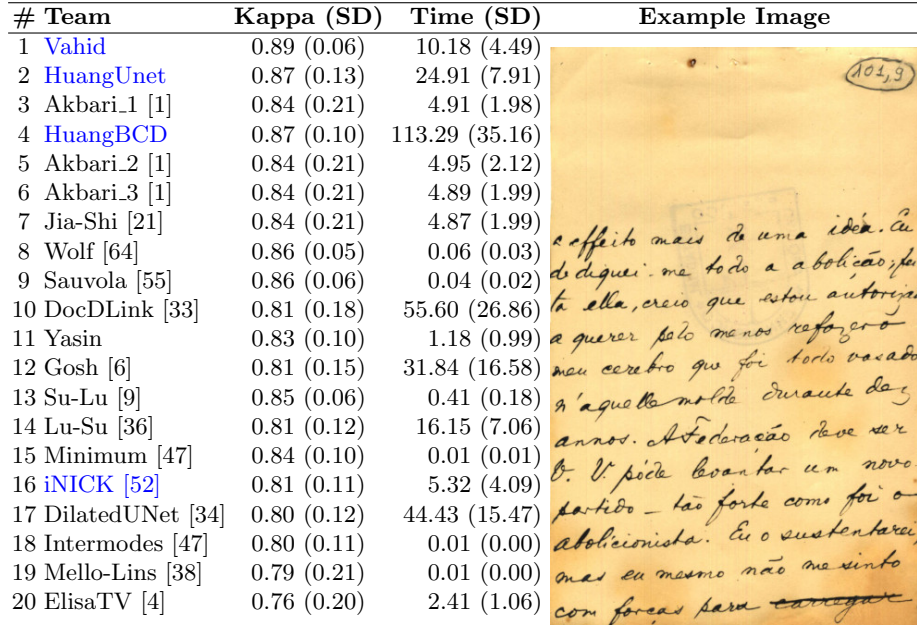 # Team Kappa (SD) Time (SD) Example Image
1 Vahid 0.89 (0.06) 10.18 (4.49)
2 HuangUnet 0.87 (0.13) 24.91 (7.91)
3 Akbari_1 [1] 0.84 (0.21) 4.91 (1.98)
4 HuangBCD 0.87 (0.10) 113.29 (35.16)
5 Akbari_2 [1] 0.84 (0.21) 4.95 (2.12)
6 Akbari_3 [1] 0.84 (0.21) 4.89 (1.99)
7 Jia-Shi [21] 0.84 (0.21) 4.87 (1.99)
8 Wolf [64] 0.86 (0.05) 0.06 (0.03)
9 Sauvola [55] 0.86 (0.06) 0.04 (0.02)
10 DocDLink [33] 0.81 (0.18) 55.60 (26.86)
11 Yasin 0.83 (0.10) 1.18 (0.99)
12 Gosh [6] 0.81 (0.15) 31.84 (16.58)
13 Su-Lu [9] 0.85 (0.06) 0.41 (0.18)
14 Lu-Su [36] 0.81 (0.12) 16.15 (7.06)
15 Minimum [47] 0.84 (0.10) 0.01 (0.01)
16 iNICK [52] 0.81 (0.11) 5.32 (4.09)
17 DilatedUNet [34] 0.80 (0.12) 44.43 (15.47)
18 Intermodes [47] 0.80 (0.11) 0.01 (0.00)
19 Mello-Lins [38] 0.79 (0.21) 0.01 (0.00)
20 ElisaTV [4] 0.76 (0.20) 2.41 (1.06)
101,9
effeito mais de uma idéa. Eu
dediquei-me todo a abolicão;
ta ella, creio que estou
a querer pelo menos refazer o
meu cerebro que foi todo vasado
n'aquelle molde durante dez
annos. A Federação deve ser
V. V. póde levantar um novo
partido – tão forte como foi o
abolicionista. Eu o sustentarei,
mas eu mesmo não me sinto
com forças para carregar